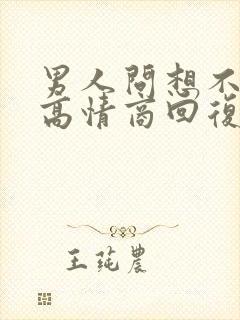 男人問想不
高情商回復
王莼農